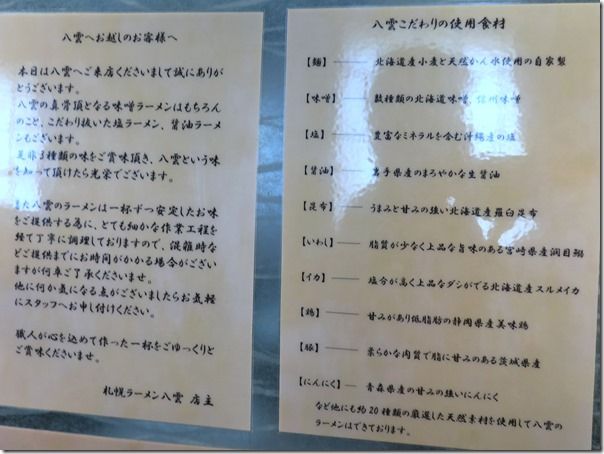 八雲へお越しのお客様へ
本日は八雲へご来店くださいまして誠にありが
とうございます。
八雲の真骨頂となる味噌ラーメンはもちろん
のこと、こだわり抜いた塩ラーメン、醤油ラーメ
ンもございます。
是非3種類の味をご賞味頂き、八雲という味
を知って頂けたら光栄でございます。
また八雲のラーメンは一杯ずつ安定したお味
をご提供する為に、とても細かな作業工程を
経て丁寧に調理しておりますので、混雑時な
どご提供までにお時間がかかる場合がござい
ますが何卒ご了承くださいませ。
他に何か気になる点がございましたらお気軽
にスタッフへお申し付けください。
職人が心を込めて作った一杯をごゆっくりと
ご賞味くださいませ。
札幌ラーメン八雲 店主
八雲こだわりの使用食材
【麺】── 北海道産小麦と天然かん水使用の自家製
【味噌】── 数種類の北海道味噌、信州味噌
【塩】── 豊富なミネラルを含む沖縄産の塩
【醤油】── 産のまろやかな生醤油
【昆布】── うまみと甘みの強い北海道産羅臼昆布
【いわし】── 脂質が少なく上品な旨味のある宮崎県産潤目鰯
【イカ】── 塩分が高く上品なダシがでる北海道産スルメイカ
【鶏】── 甘みがあり低脂肪の静岡県産美味鶏
【豚】── 柔らかな肉質で脂に甘みのある茨城県産
【にんにく】── 青森県産の甘みの強いにんにく
など他にも約20種類の厳選した天然素材を使用して八雲の
ラーメンはできております。